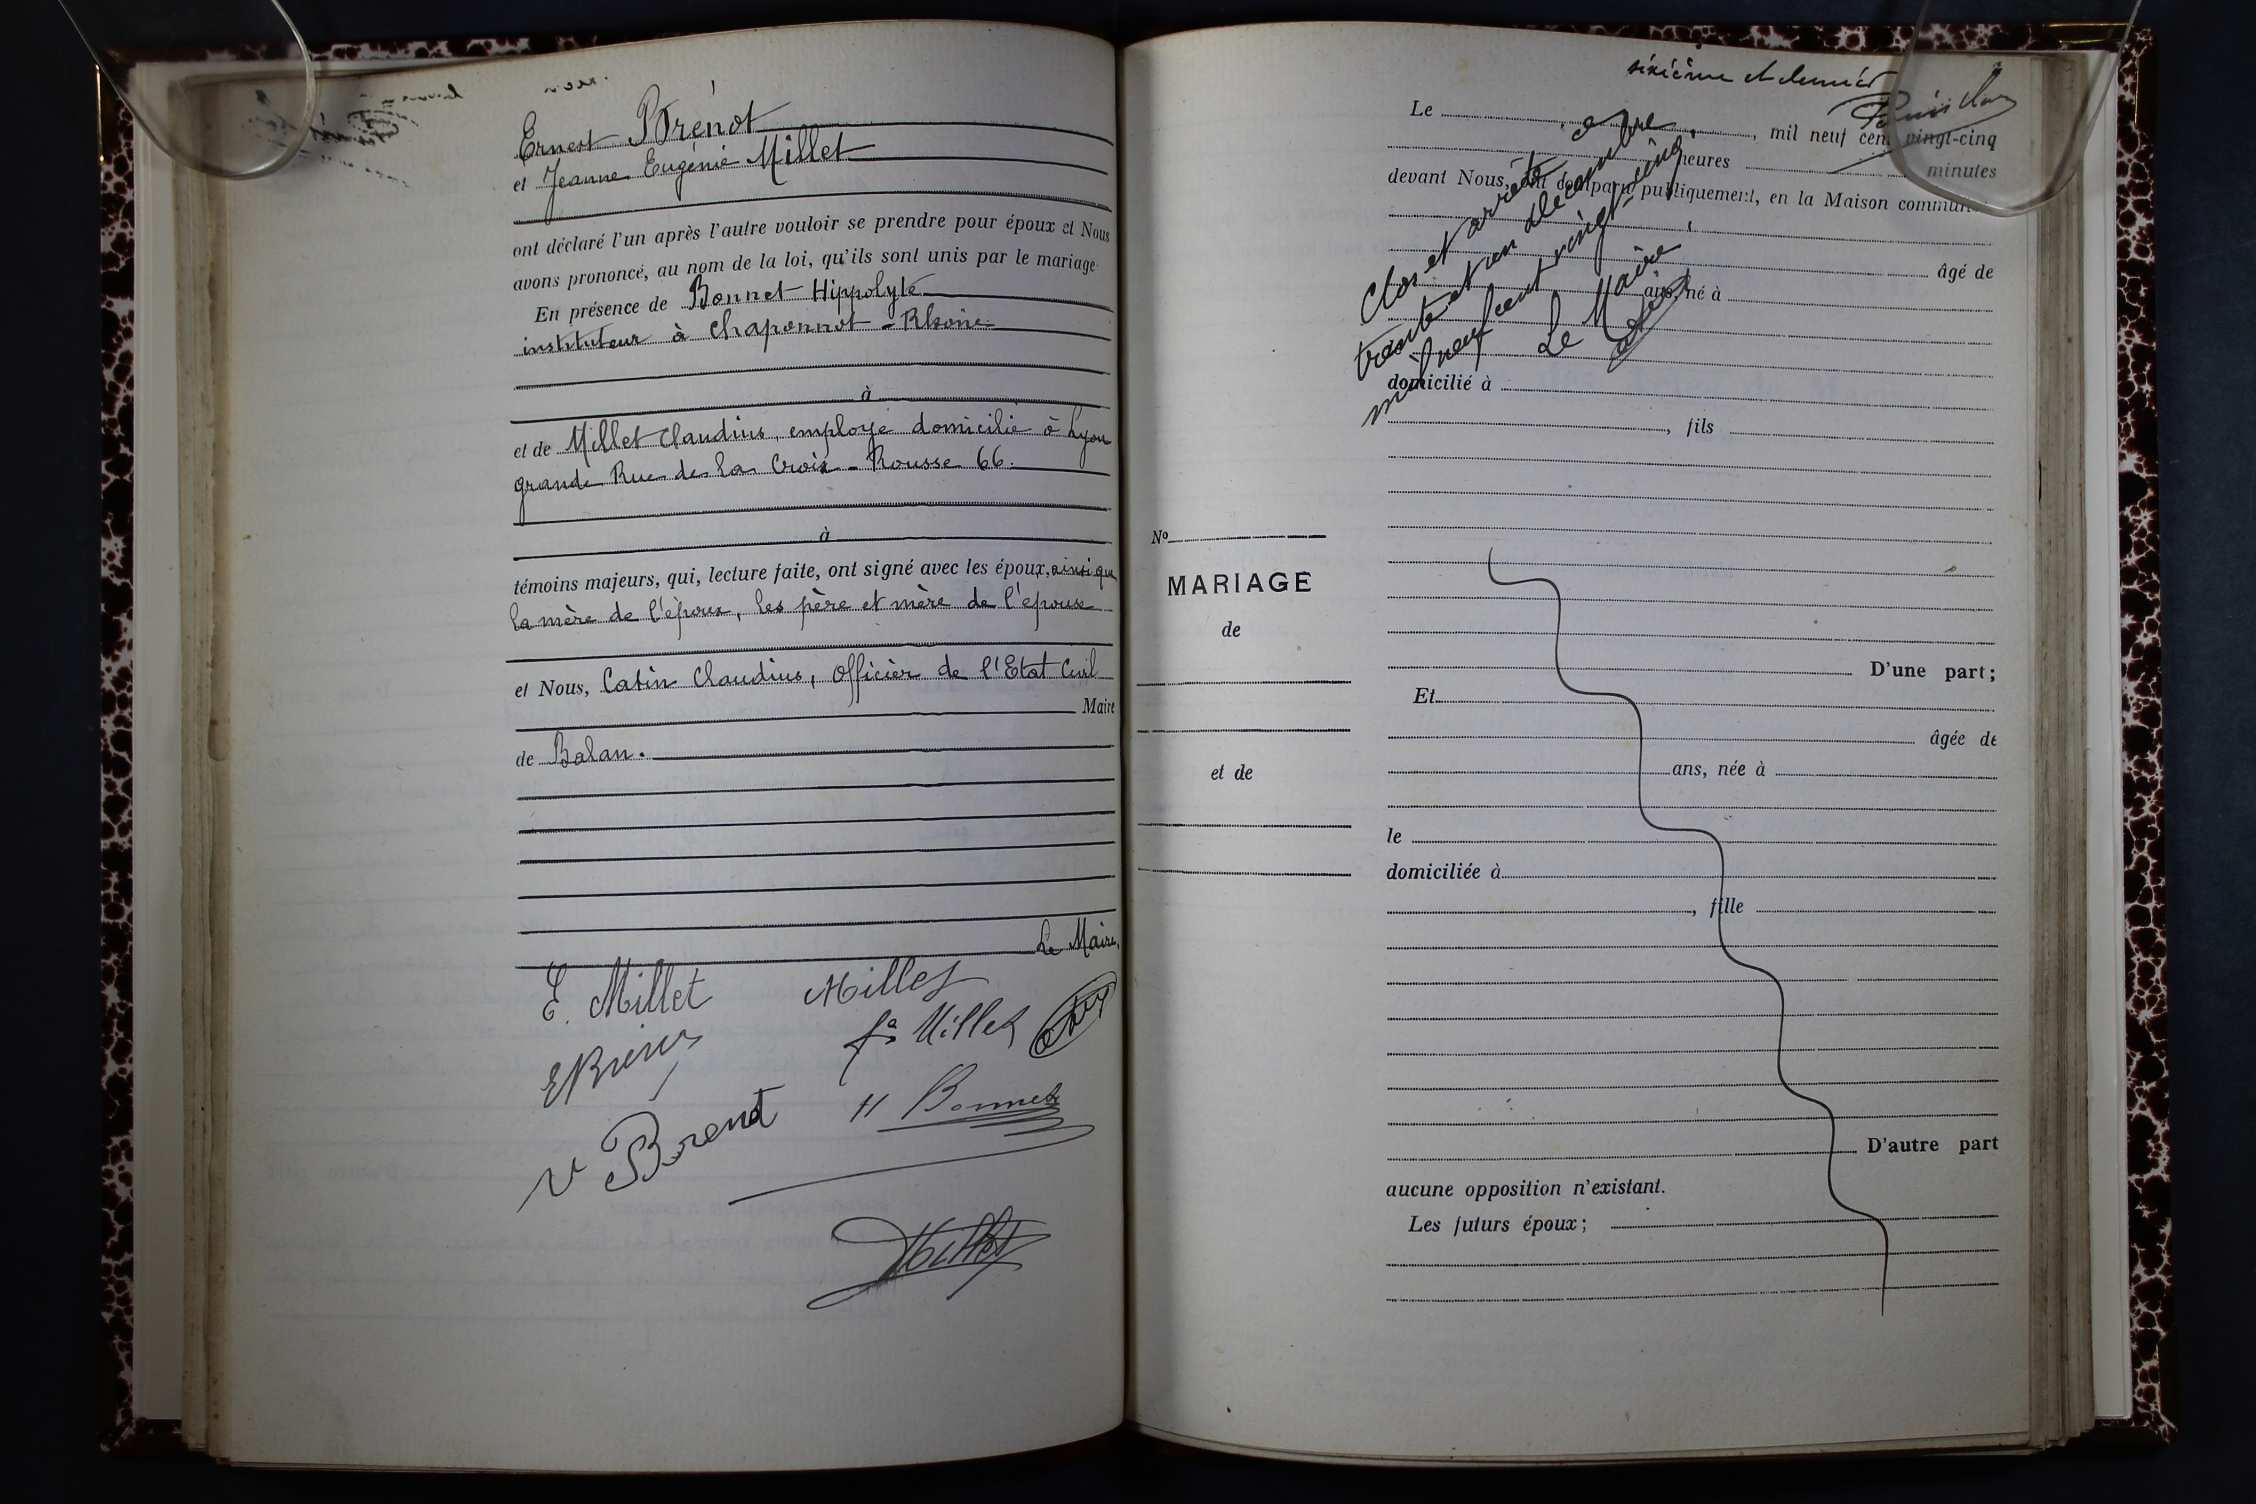 Ernest Brénot
et Jeanne Eugénie Millet
ont déclaré l'un après l'autre vouloir se prendre pour époux et Nous
avons prononcé, au nom de la loi, qu'ils sont unis par le mariage
En présence de Bonnet Hippolyte
instituteur à Chaponnost - Rhône
à
et de Millet Claudius, employé domicilié à Lyon
grande Rue de la Croix-Rousse 66.
à
témoins majeurs, qui, lecture faite, ont signé avec les époux, ainsi que
la mère de l'époux, les père et mère de l'épouse
et Nous, Catin Claudius, Officier de l'Etat Civil
Maire
de Balan.
Le Maire,
E. Millet
Millet
fe Millet
E Brenot
H Bonnet
V Brenot
Millet
sixième et dernier
Le , mil neuf cent vingt-cinq
heures minutes
devant Nous, ont comparu publiquement, en la Maison commune
âgé de
ans, né à
domicilié à
, fils
Clos et arrêté ce
trente et un décembre
mil neuf cent vingt-cinq.
Le Maire
Nº
MARIAGE
de
et de
D'une part;
Et
âgée de
ans, née à
le
domiciliée à
, fille
D'autre part
aucune opposition n'existant.
Les futurs époux;